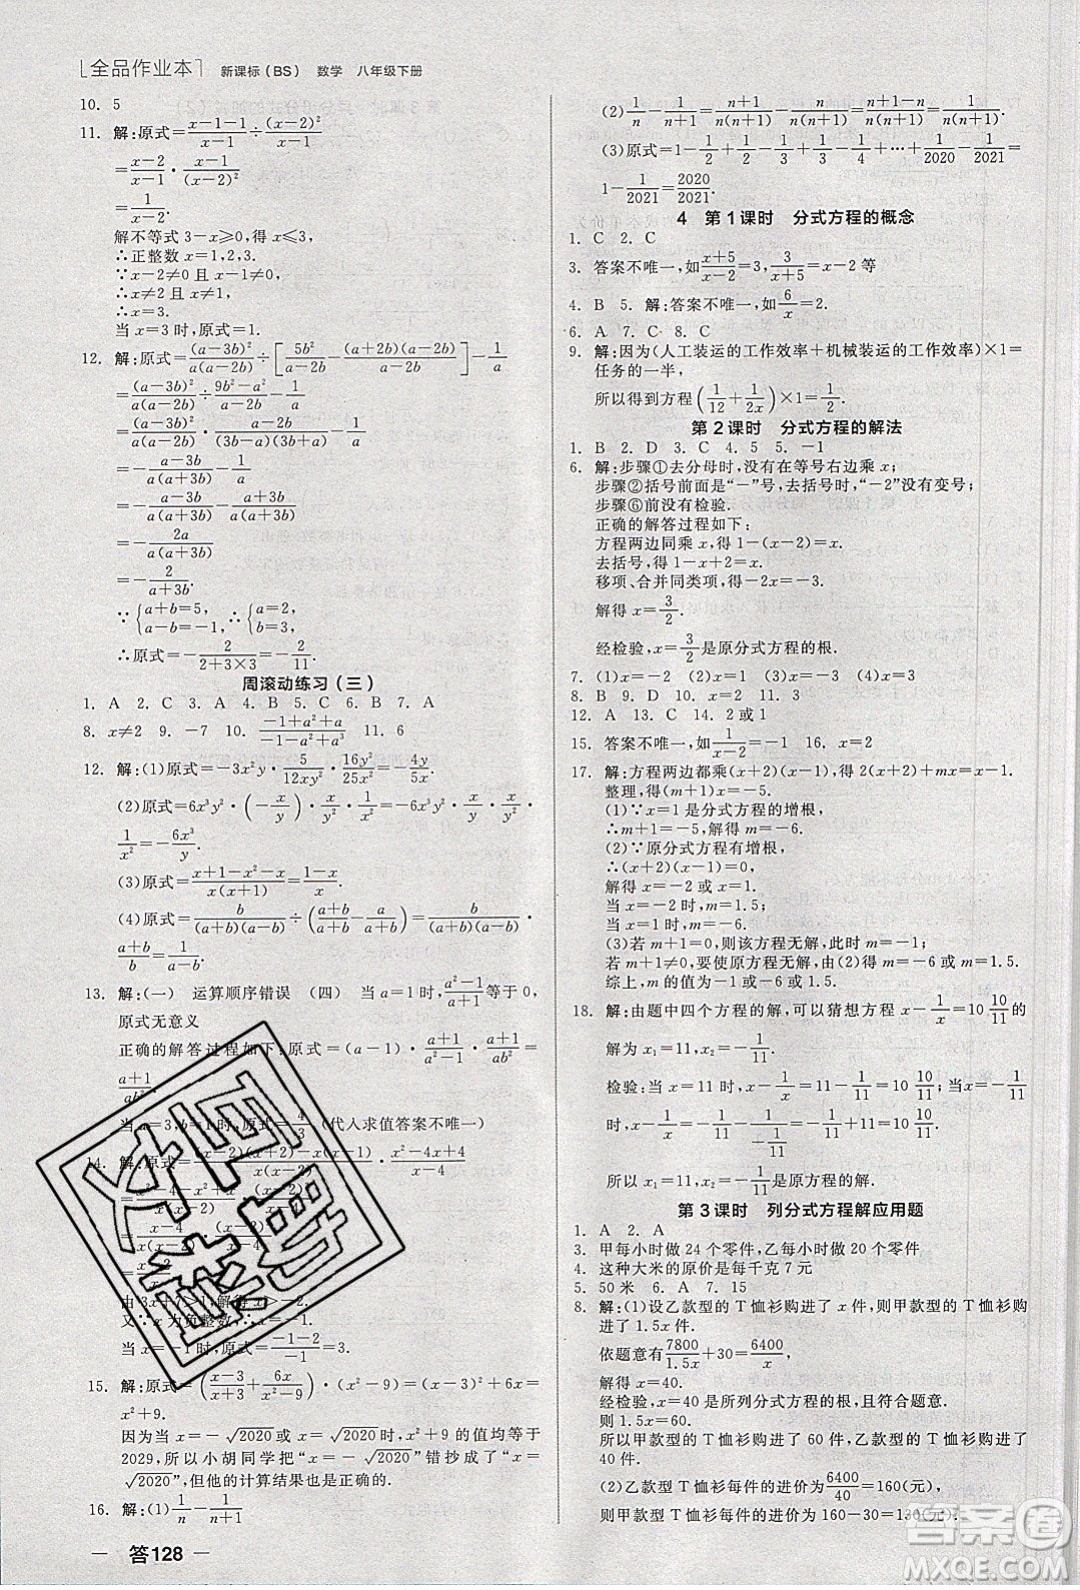 全品作业本 新课标(BS) 数学 八年级下册
10. 5
11. 解:原式=\frac{x-1-1}{x-1}÷\frac{(x-2)^2}{x-1}
=\frac{x-2}{x-1}·\frac{x-1}{(x-2)^2}
=\frac{1}{x-2}.
解不等式 3-x≥0,得 x≤3.
∴正整数 x=1,2,3.
∵x-2≠0 且 x-1≠0,
∴x≠2 且 x≠1,
∴x=3.
当 x=3 时,原式=1.
12. 解:原式=\frac{(a-3b)^2}{a(a-2b)}÷[\frac{5b^2}{a-2b}-\frac{(a+2b)(a-2b)}{a-2b}]-\frac{1}{a}
=\frac{(a-3b)^2}{a(a-2b)}÷\frac{9b^2-a^2}{a-2b}-\frac{1}{a}
=\frac{(a-3b)^2}{a(a-2b)}·\frac{a-2b}{(3b-a)(3b+a)}-\frac{1}{a}
=-\frac{a-3b}{a(a+3b)}-\frac{1}{a}
=-\frac{a-3b}{a(a+3b)}-\frac{a+3b}{a(a+3b)}
=-\frac{2a}{a(a+3b)}
=-\frac{2}{a+3b}.
∵{a+b=5, a-b=-1, ∴{a=2, b=3,
∴原式=-\frac{2}{2+3×3}=-\frac{2}{11}.
周滚动练习(三)
1. A 2. C 3. A 4. B 5. C 6. B 7. A
8. x≠2 9. -7 10. \frac{-1+a^2+a}{-1-a^2+a^3} 11. 6
12. 解:(1)原式=-3x^2y·\frac{5}{12xy^2}·\frac{16y^2}{25x^2}=-\frac{4y}{5x}.
(2)原式=6x^3y^2·(-\frac{x}{y})·\frac{y}{x}·\frac{1}{x^2}=-6x^3y^2·\frac{x}{y}·\frac{y}{x}·
\frac{1}{x^2}=-\frac{6x^3}{y}.
(3)原式=\frac{x+1-x^2-x^2-x}{(x-1)(x+1)}.
(4)原式=\frac{b}{(a+b)(a-b)}÷(\frac{a+b}{a+b}-\frac{a}{a+b})=\frac{b}{(a+b)(a-b)}·
\frac{a+b}{b}=\frac{1}{a-b}.
13. 解:(一) 运算顺序错误 (四) 当 a=1 时,\frac{a^2-1}{a+1}等于 0,
原式无意义
正确的解答过程如下:原式=(a-1)·\frac{a+1}{a-1}·\frac{a+1}{ab^2}=
\frac{a+1}{ab^2}.
当 a=3,b=1 时,原式=\frac{4}{3}(代入求值答案不唯一)
14. 解:原式=\frac{(x-2)(x+2)-x(x-1)}{x(x+2)^2}·\frac{x^2-4x+4}{x-4}
由 3x+7>1,解得 x>-2.
又∵x 为负整数,∴x=-1.
当 x=-1 时,原式=\frac{-1-2}{-1}=3.
15. 解:原式=(\frac{x-3}{x+3}+\frac{6x}{x^2-9})(x^2-9)=(x-3)^2+6x=
x^2+9.
因为当 x=-\sqrt{2020} 或 x=\sqrt{2020} 时,x^2+9 的值均等于
2029,所以小胡同学把“x=-\sqrt{2020}”错抄成了“x=
\sqrt{2020}”,但他的计算结果也是正确的.
16. 解:(1)\frac{1}{n}-\frac{1}{n+1}
(2)\frac{1}{n}-\frac{1}{n+1}=\frac{n+1}{n(n+1)}-\frac{n}{n(n+1)}=\frac{n+1-n}{n(n+1)}=\frac{1}{n(n+1)}.
(3)原式=1-\frac{1}{2}+\frac{1}{2}-\frac{1}{3}+\frac{1}{3}-\frac{1}{4}+…+\frac{1}{2020}-\frac{1}{2021}=
1-\frac{1}{2021}=\frac{2020}{2021}.
4 第1课时 分式方程的概念
1. C 2. C
3. 答案不唯一,如\frac{x+5}{x-2}=3,\frac{3}{x+5}=x-2等
4. B 5. 解:答案不唯一,如\frac{6}{x}=2.
6. A 7. C 8. C
9. 解:因为(人工装运的工作效率+机械装运的工作效率)×1=
任务的一半,
所以得到方程(\frac{1}{12}+\frac{1}{2x})×1=\frac{1}{2}.
第2课时 分式方程的解法
1. B 2. D 3. C 4. 5 5. -1
6. 解:步骤①去分母时,没有在等号右边乘 x;
步骤②括号前面是“-”号,去括号时,“-2”没有变号;
步骤⑥前没有检验.
正确的解答过程如下:
方程两边同乘 x,得 1-(x-2)=x.
去括号,得 1-x+2=x.
移项、合并同类项,得-2x=-3.
解得 x=\frac{3}{2}.
经检验,x=\frac{3}{2}是原分式方程的根.
7. (1)x=-2 (2)x=2 (3)x=-3 (4)x=0
8. B 9. D 10. C 11. B
12. A 13. C 14. 2或1
15. 答案不唯一,如\frac{1}{x-2}=-1 16. x=2
17. 解:方程两边都乘(x+2)(x-1),得 2(x+2)+mx=x-1.
整理,得(m+1)x=-5.
(1)∵x=1 是分式方程的增根,
∴m+1=-5,∴m=-6.
(2)∵原分式方程有增根,
∴(x+2)(x-1)=0,
解得 x=-2 或 x=1.
当 x=-2 时,m=1.5;
当 x=1 时,m=-6.
(3)若 m+1=0,则该方程无解,此时 m=-1;
若 m+1≠0,要使原方程无解,由(2)得 m=-6 或 m=1.5.
综上,m 的值为-1 或-6 或 1.5.
18. 解:由题中四个方程的解,可以猜想方程 x-\frac{1}{x}=10\frac{10}{11}的
解为 x_1=11,x_2=-\frac{1}{11}.
检验:当 x=11 时,x-\frac{1}{x}=11-\frac{1}{11}=10\frac{10}{11};当 x=-\frac{1}{11}
时,
所以 x_1=11,x_2=-\frac{1}{11}是原方程的解.
第3课时 列分式方程解应用题
1. A 2. A
3. 甲每小时做 24 个零件,乙每小时做 20 个零件
4. 这种大米的原价是每千克 7 元
5. 50 米 6. A 7. 15
8. 解:(1)设乙款型的 T 恤衫购进了 x 件,则甲款型的 T 恤衫购进
了 1.5x 件.
依题意得\frac{7800}{1.5x}+30=\frac{6400}{x}.
解得 x=40.
经检验,x=40 是所列分式方程的根,且符合题意.
则 1.5x=60.
所以甲款型的 T 恤衫购进了 60 件,乙款型的 T 恤衫购进了
40 件.
(2)乙款型 T 恤衫每件的进价为\frac{6400}{40}=160(元),
则甲款型 T 恤衫每件的进价为 160-30=130(元).
— 答128 —
答案圈
MXQE.COM